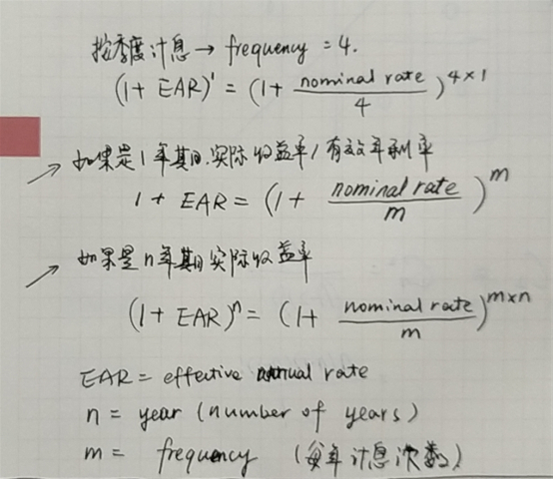 按季度计息 → frequency = 4.
(1 + EAR)¹ = (1 + nominal rate / 4)^(4×1)
→ 如果是1年期的实际收益率/有效年利率
1 + EAR = (1 + nominal rate / m)^m
→ 如果是n年期的实际收益率
(1 + EAR)ⁿ = (1 + nominal rate / m)^(m×n)
EAR = effective annual rate
n = year (number of years)
m = frequency (每年计息次数)